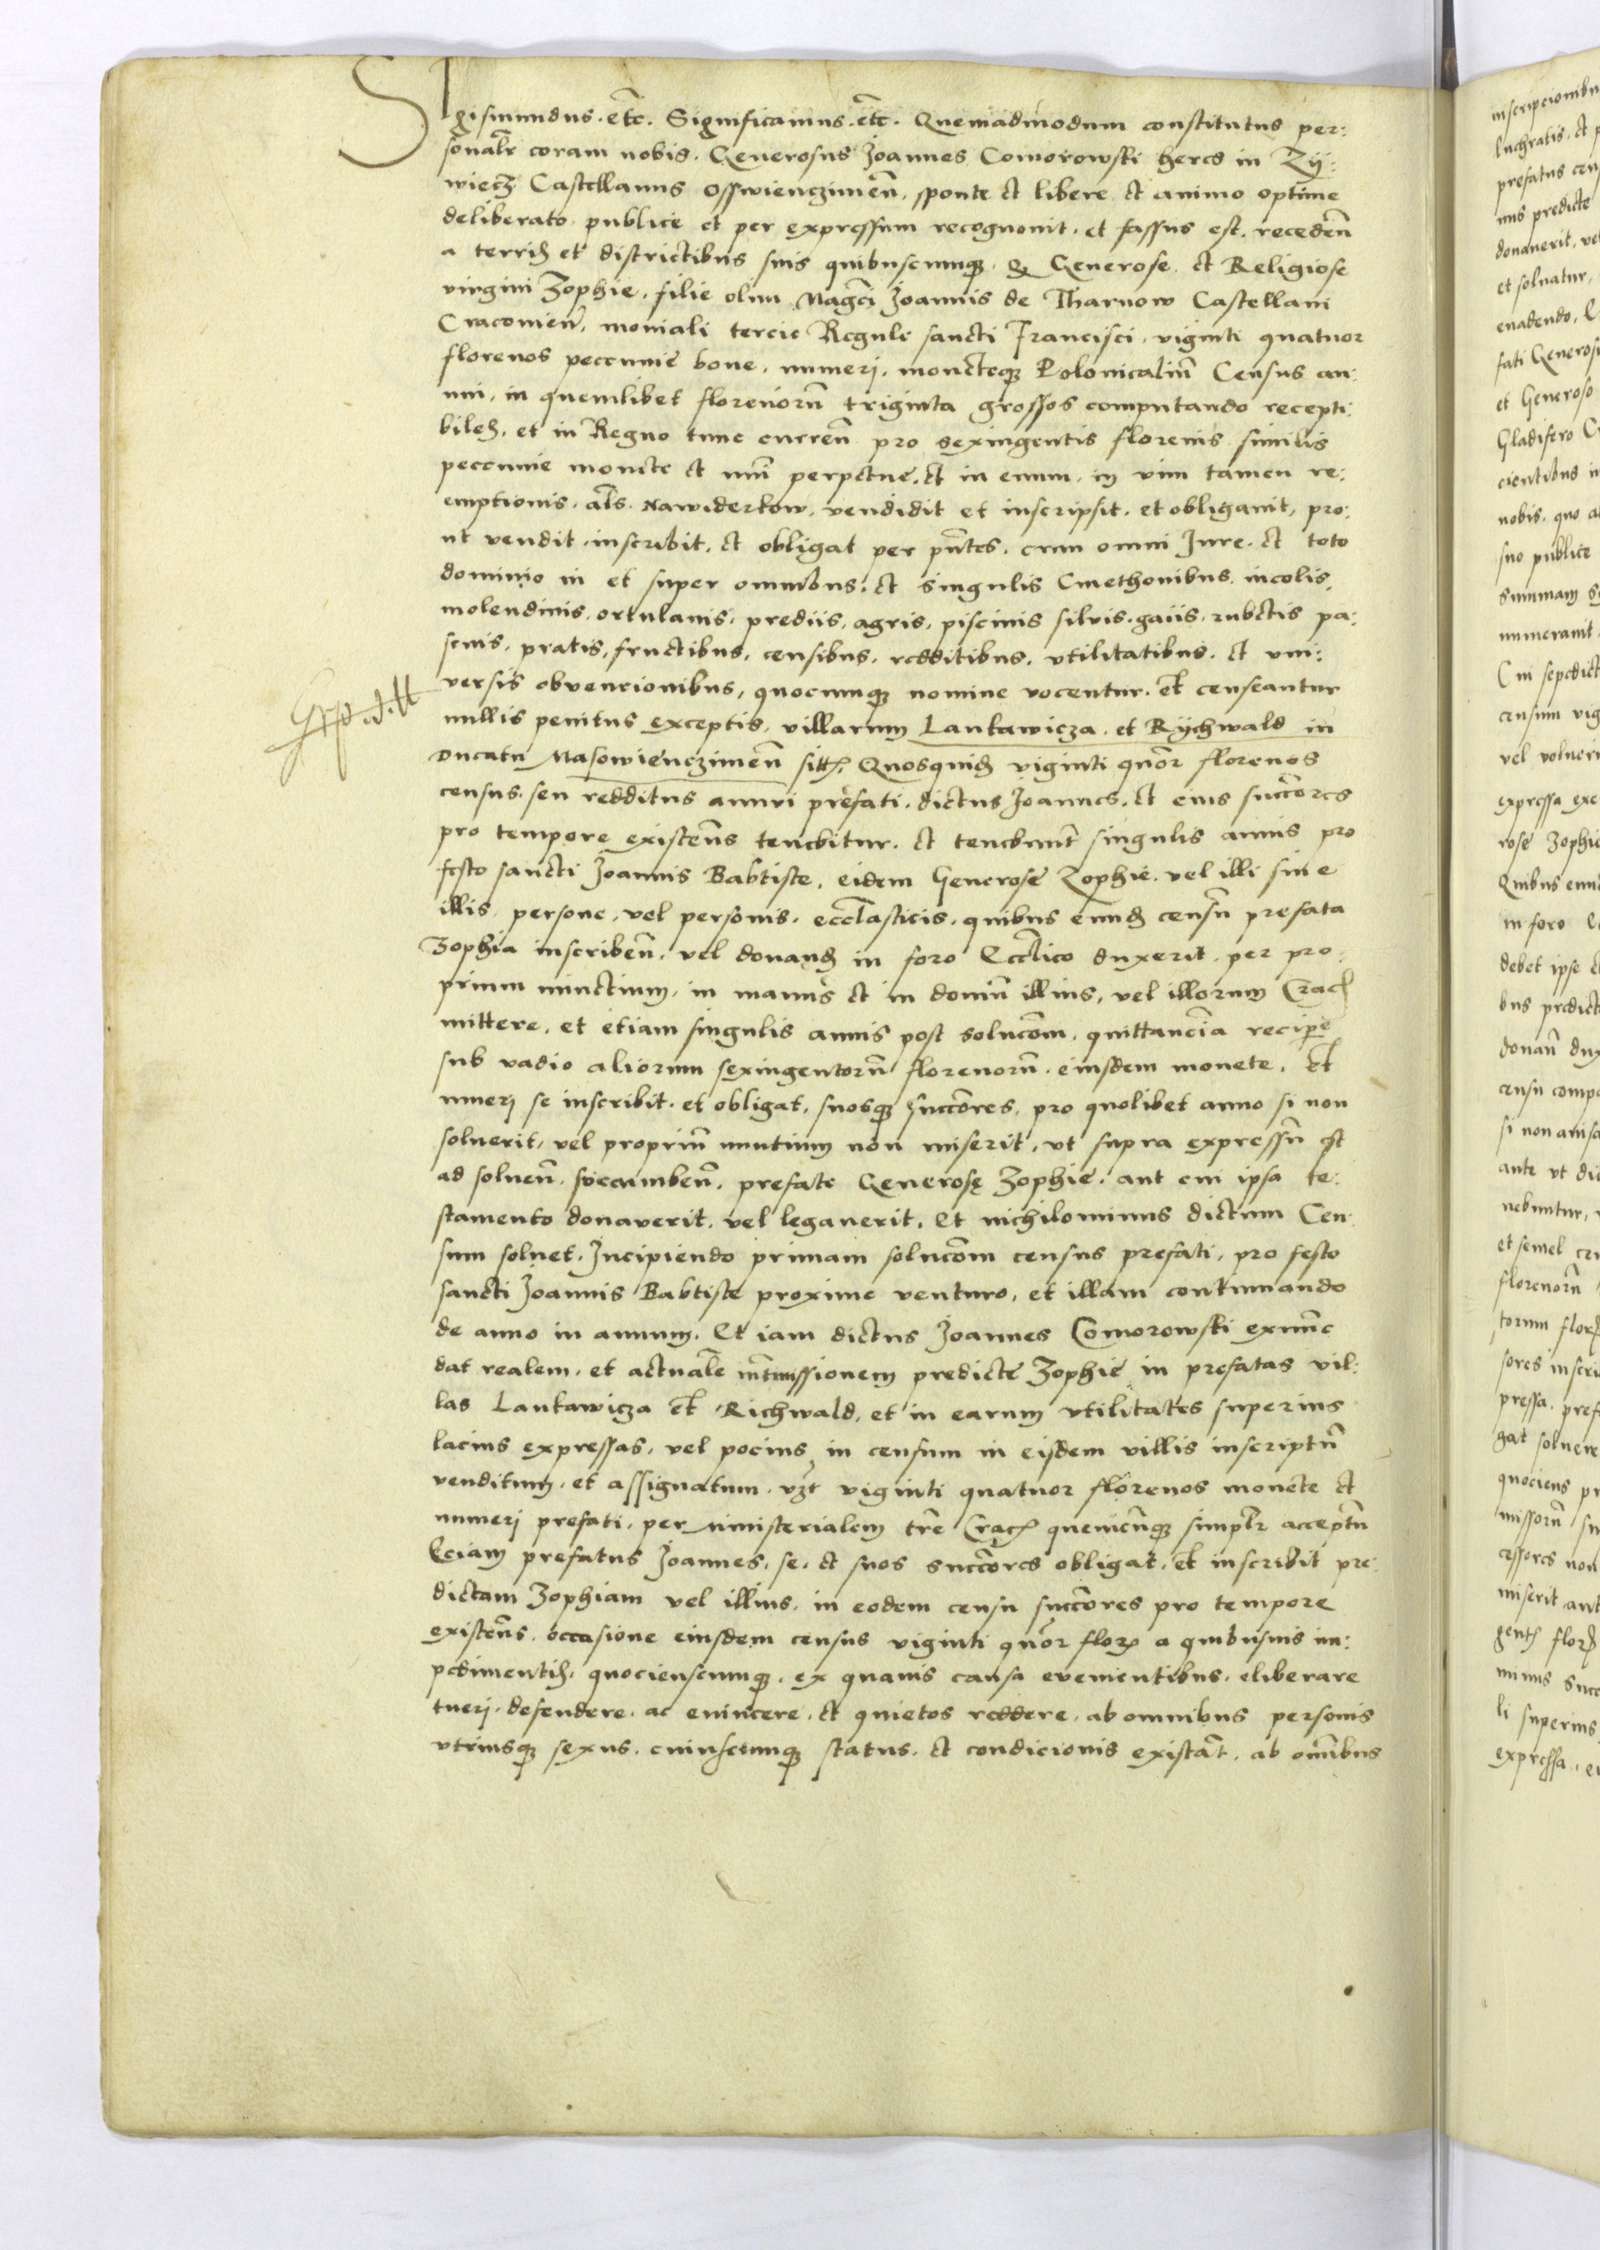 Sigismundus. etc. Significamus. etc. Quemadmodum constitutus per:
sonalr coram nobis. Generosus Joannes Comorowski heres in Zÿ:
wiecz Castellanus Osswienczimen̄. sponte et libere et animo optime
deliberato publice et per expressum recognouit. et fassus est. receden̄
a terris et districtibus suis quibuscunq. Q Generose et Religiose
virgini Zophie. filie olim Magci Joannis de Tharnow Castellani
Cracouien̄. moniali tercie Regule sancti Francisci. viginti quatuor
florenos peccunie bone. numeri. moneteq Polonicaliū Census an:
nui. in quemlibet florenorū triginta grossos computando recepti:
biles. et in Regno tunc curren̄ pro sexingentis florenis similis
peccunie monete et nūi perpetue. et in euum. in vim tamen re:
emptionis. als. nawiderkow. vendidit et inscripsit. et obligauit, pro:
ut vendit. inscribit. et obligat per pn̄tes. cum omni Jure. et toto
dominio in et super omnibus. et singulis Cmethonibus. incolis.
molendinis. ortulanis. prediis. agris. piscinis silvis. gaiis. rubetis pa:
scuis. pratis. fructibus. censibus. redditibus. vtilitatibus. et vni:
versis obvencionibus, quocunq nomine vocentur. et censeantur
nullis penitus exceptis. villarum Lankawicza. et Rÿchwald in
Ducatu Nasowienczimen̄ sitt. Quosquid viginti quor florenos
census. seu redditus annui prefati. dictus Joannes. et eius succores
pro tempore existen̄s tenebitur. et tenebunt singulis annis pro
festo sancti Joannis Babtiste. eidem Generose Zophie. vel illi siue
illis persone. vel personis. ecclasticis. quibus eund censū prefata
Zophia inscriben̄. vel donand in foro Ecclico duxerit. per pro:
prium nunctium. in manus et in domū illius, vel illorum Crac
mittere. et etiam singulis annis post solucom. quittancia recipe
sub vadio aliorum sexingentorū florenorū. eiusdem monete. et
numeri se inscribit. et obligat. suosq succores. pro quolibet anno si non
soluerit, vel propriū nuntium non miserit, vt supra expressū est
ad soluen̄. succumben̄. prefate Generose Zophie. aut cui ipsa te:
stamento donaverit. vel legauerit. Et nichilominus dictum Cen:
sum soluet. Incipiendo primam solucom census prefati, pro festo
sancti Joannis Babtiste proxime venturo, et illam continuando
de anno in annum. Et iam dictus Joannes Comorowski exnunc
dat realem. et actuale intmissionem predicte Zophie in prefatas vil:
las Lankawicza et Richwald, et in earum vtilitates superius
lacius expressas, vel pocius in censum in eisdem villis inscriptū
venditum. et assignatum. vzt viginti quatuor florenos monete et
numeri prefati. per ministerialem tre Crac quemcunq simplr acceptū
Eciam prefatus Joannes. se. et suos succores obligat. et inscribit pre:
dictam Zophiam vel illius. in eodem censu succores pro tempore
existen̄s. occasione eiusdem census viginti quor flor a quibusuis im:
pedimentis. quocienscunq. ex quauis causa evenientibus. eliberare
tueri. defendere. ac euincere. et quietos reddere. ab omnibus personis
vtriusq sexus. cuiuscunq status. et condicionis existat. ab omībus